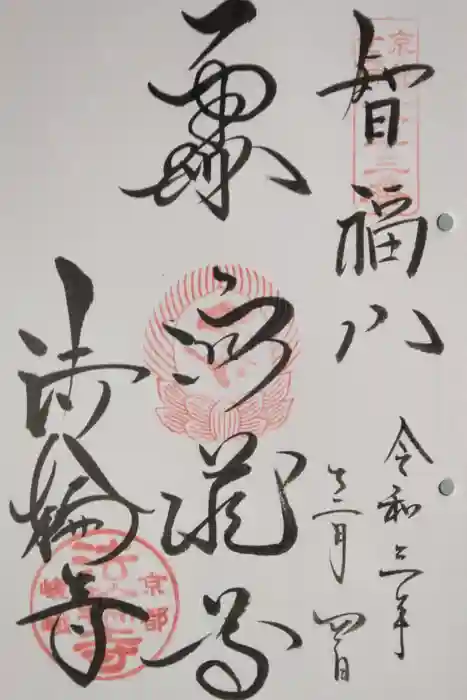 京都
智福山
令和三年
十二月四日
虚空蔵尊
法輪寺
京都
嵯峨
法輪寺